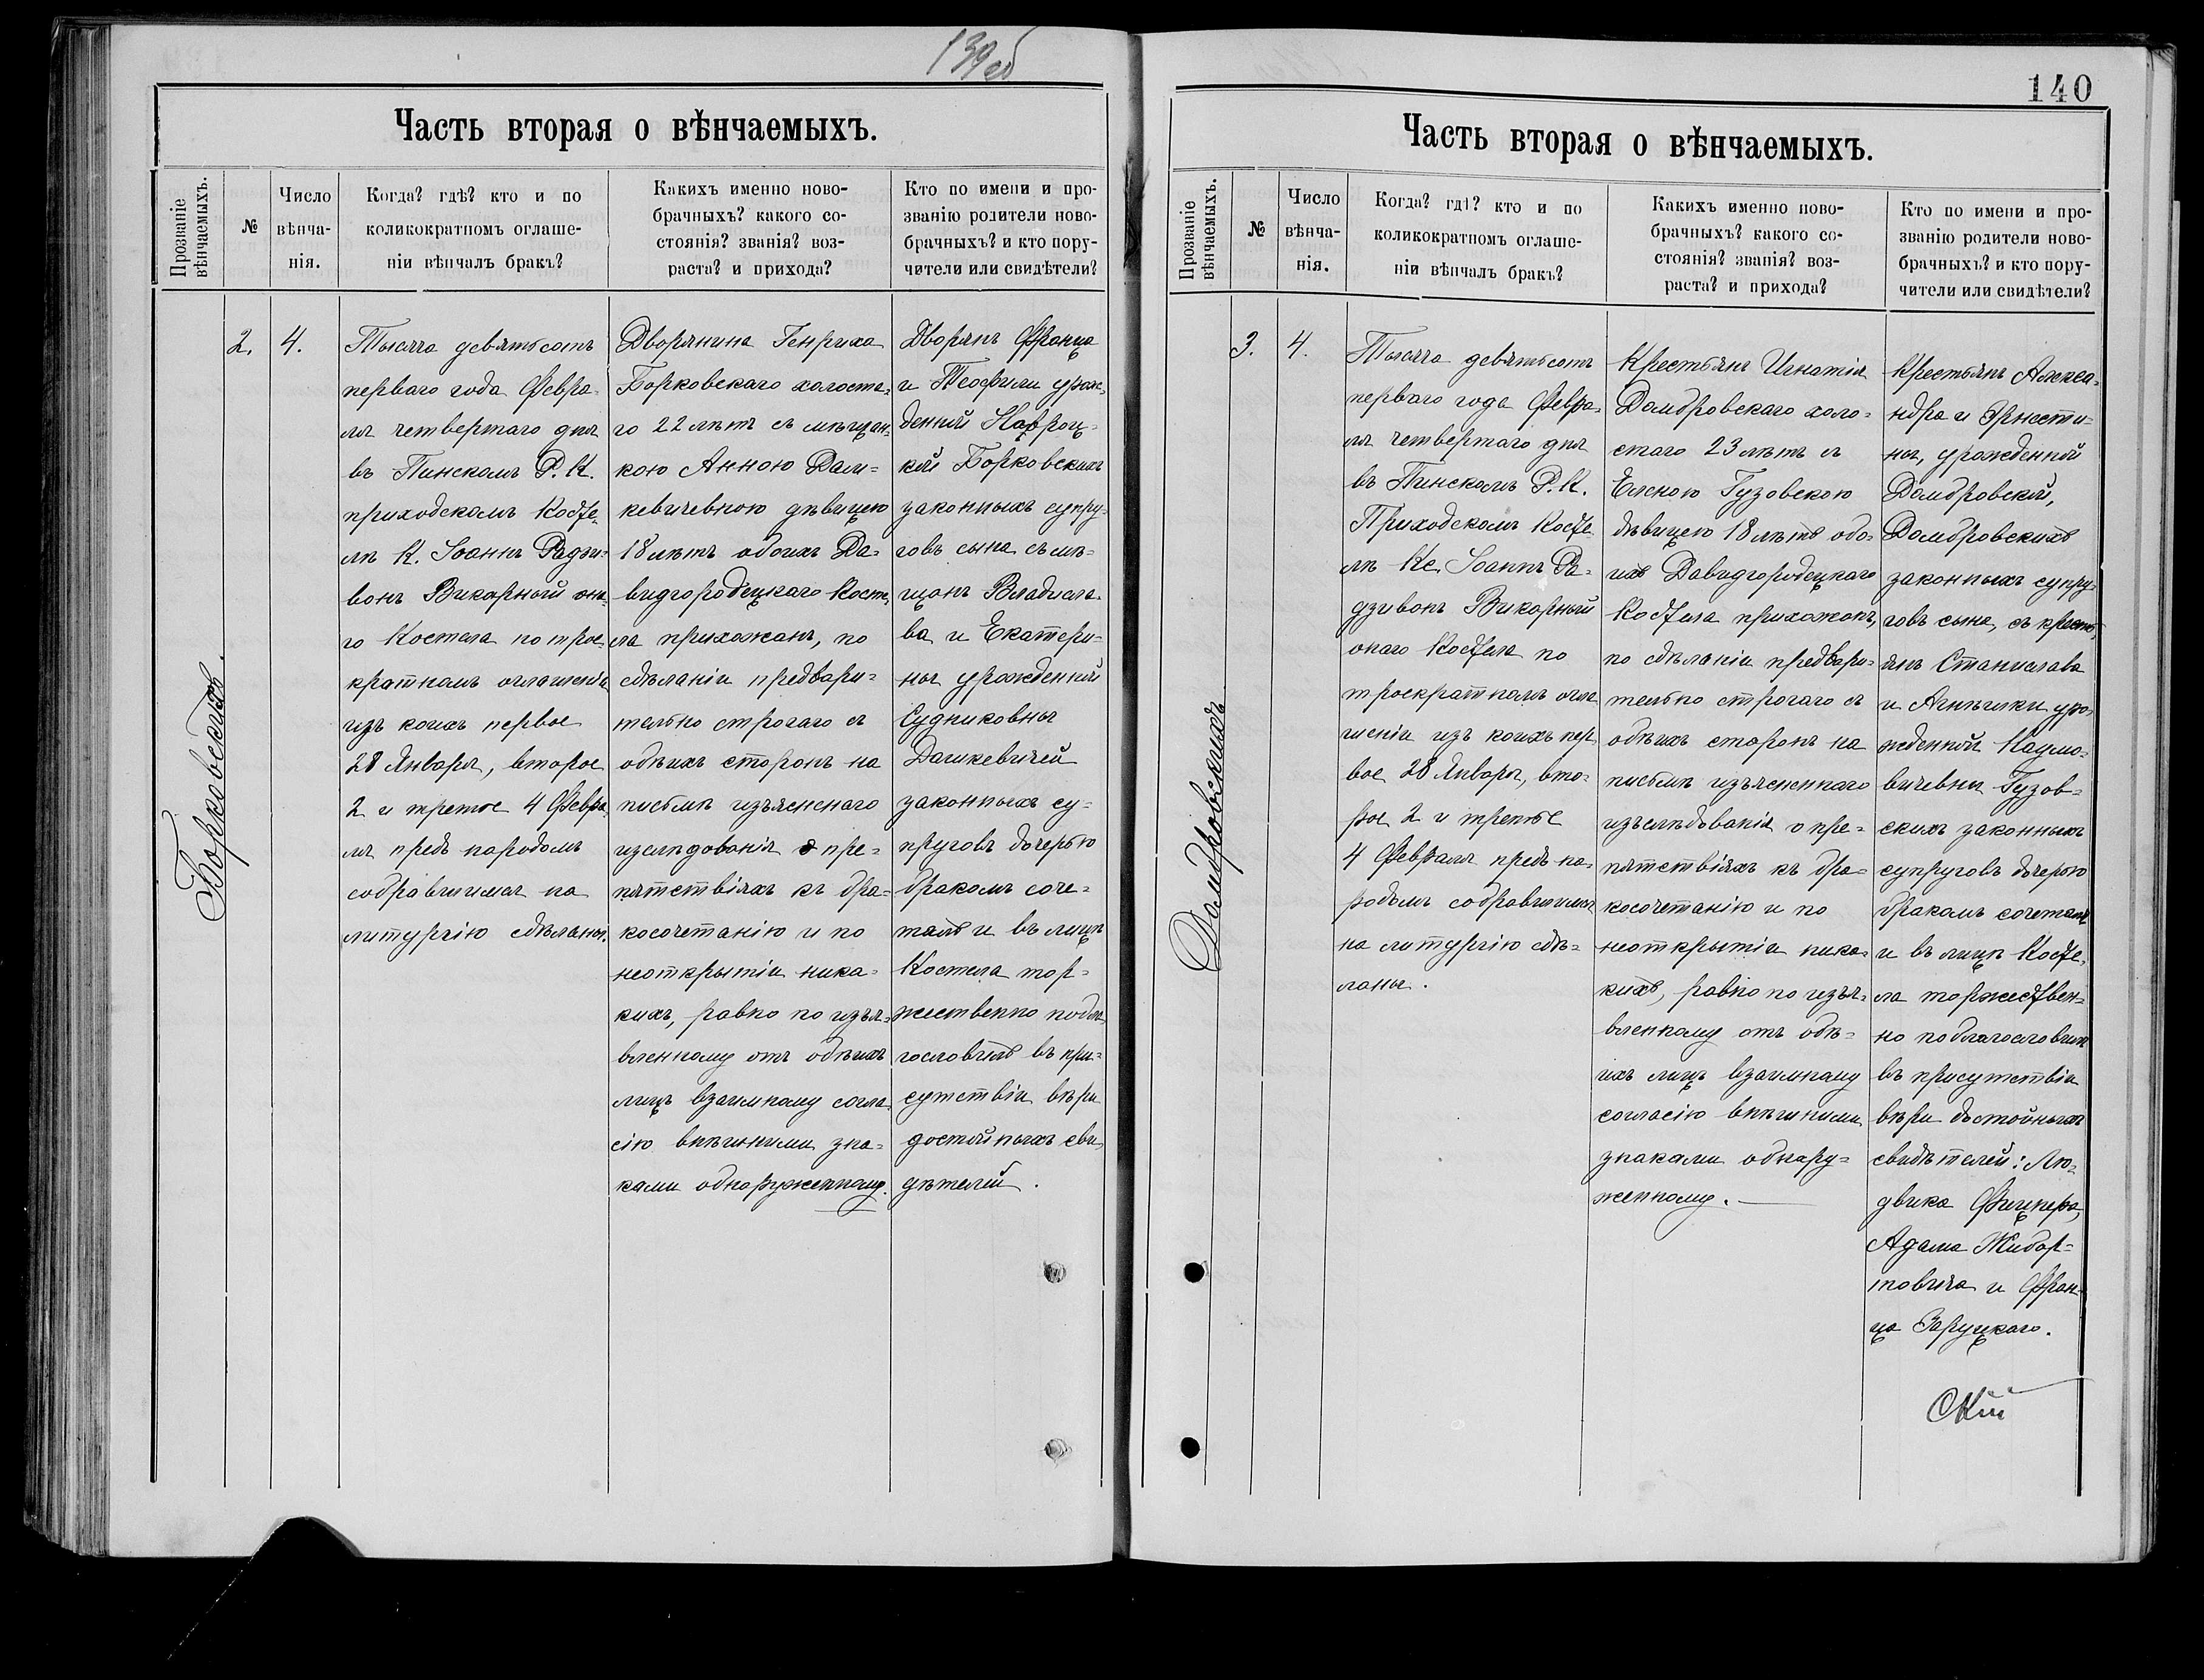 139об
Часть вторая о вѣнчаемыхъ.
Прозваніе вѣнчаемыхъ.
№
Число вѣнча-
нія.
Когда? гдѣ? кто и по
коликократномъ оглаше-
ніи вѣнчалъ бракъ?
Какихъ именно ново-
брачныхъ? какого со-
стоянія? званія? воз-
раста? и прихода?
Кто по имени и про-
званію родители ново-
брачныхъ? и кто пору-
чители или свидѣтели?
Борковскихъ.
2.
4.
Тысяча девятьсотъ
перваго года Февра-
ля четвертаго дня
въ Пинскомъ Р. К.
приходскомъ Косте-
лѣ К. Іоаннъ Радзи-
вонъ Викарный она-
го Костела по трое-
кратномъ оглашеніи
изъ коихъ первое
28 Января, второе
2 и третье 4 Февра-
ля предъ народомъ
собравшимся на
литургію сдѣланы.
Дворянина Генриха
Борковскаго холоста-
го 22 лѣтъ съ мѣщан-
кою Анною Даш-
кевичевною дѣвицею
18 лѣтъ обоихъ Да-
видгородецкаго Косте-
ла прихожанъ, по
сдѣланіи предвари-
тельно строгаго съ
обѣихъ сторонъ на
письмѣ изъясненаго
изслѣдованія о пре-
пятствіяхъ къ бра-
косочетанію и по
неоткрытіи ника-
кихъ, равно по изъя-
вленному отъ обѣихъ
лицъ взаимному согла-
сію внѣшними зна-
ками обнаруженному.
Дворянъ Франца
и Теофили урож-
денной
кой Борковскихъ
законныхъ супру-
говъ сына, съ мѣ-
щанъ Владисла-
ва и Екатери-
ны урожденной
Судниковны
Дашкевичей
законныхъ су-
пруговъ дочерью
бракомъ соче-
талъ и въ лицѣ
Костела тор-
жественно побла-
гословилъ въ при-
сутствіи вѣри
достойныхъ сви-
дѣтелей.
140
Часть вторая о вѣнчаемыхъ.
Прозваніе вѣнчаемыхъ.
№
Число вѣнча-
нія.
Когда? гдѣ? кто и по
коликократномъ оглаше-
ніи вѣнчалъ бракъ?
Какихъ именно ново-
брачныхъ? какого со-
стоянія? званія? воз-
раста? и прихода?
Кто по имени и про-
званію родители ново-
брачныхъ? и кто пору-
чители или свидѣтели?
Домбровскихъ
3.
4.
Тысяча девятьсотъ
перваго года Февра-
ля четвертаго дня
въ Пинскомъ Р. К.
Приходскомъ Косте
лѣ Кс. Іоаннъ Ра-
дзивонъ Викарный
онаго Костела по
троекратномъ огла
шеніи изъ коихъ пер
вое 28 Января, вто-
рое 2 и третье
4 Февраля предъ на-
родомъ собравшимся
на литургію сдѣ-
ланы.
Крестьянъ Игнатія
Домбровскаго холо-
стаго 23 лѣтъ съ
Еленою Гузовскою
дѣвицею 18 лѣтъ обо-
ихъ Давидгородецкаго
Костела прихожанъ,
по сдѣланіи предвари-
тельно строгаго съ
обѣихъ сторонъ на
письмѣ изъясненнаго
изъслѣдованія о пре-
пятствіяхъ къ бра-
косочетанію и по
неоткрытіи ника-
кихъ, равно по изъя-
вленному отъ обѣ-
ихъ лицъ взаимному
согласію внѣшними
знаками обнару-
женному.
Крестьянъ Алекса-
ндра и Эрнести-
ны, урожденной
Домбровской,
Домбровскихъ
законныхъ супру-
говъ сына, съ кресть-
янъ Станислава
и Агнѣшки уро-
жденной Наумо-
вичевны Гузов-
скихъ законныхъ
супруговъ дочерью
бракомъ сочеталъ
и въ лицѣ Косте-
ла торжествен-
но поблагословилъ
въ присутствіи
вѣри достойныхъ
свидѣтелей: Лю-
двика Фицнера,
Адама Жибор-
товича и Фран-
ца Заруцкаго.